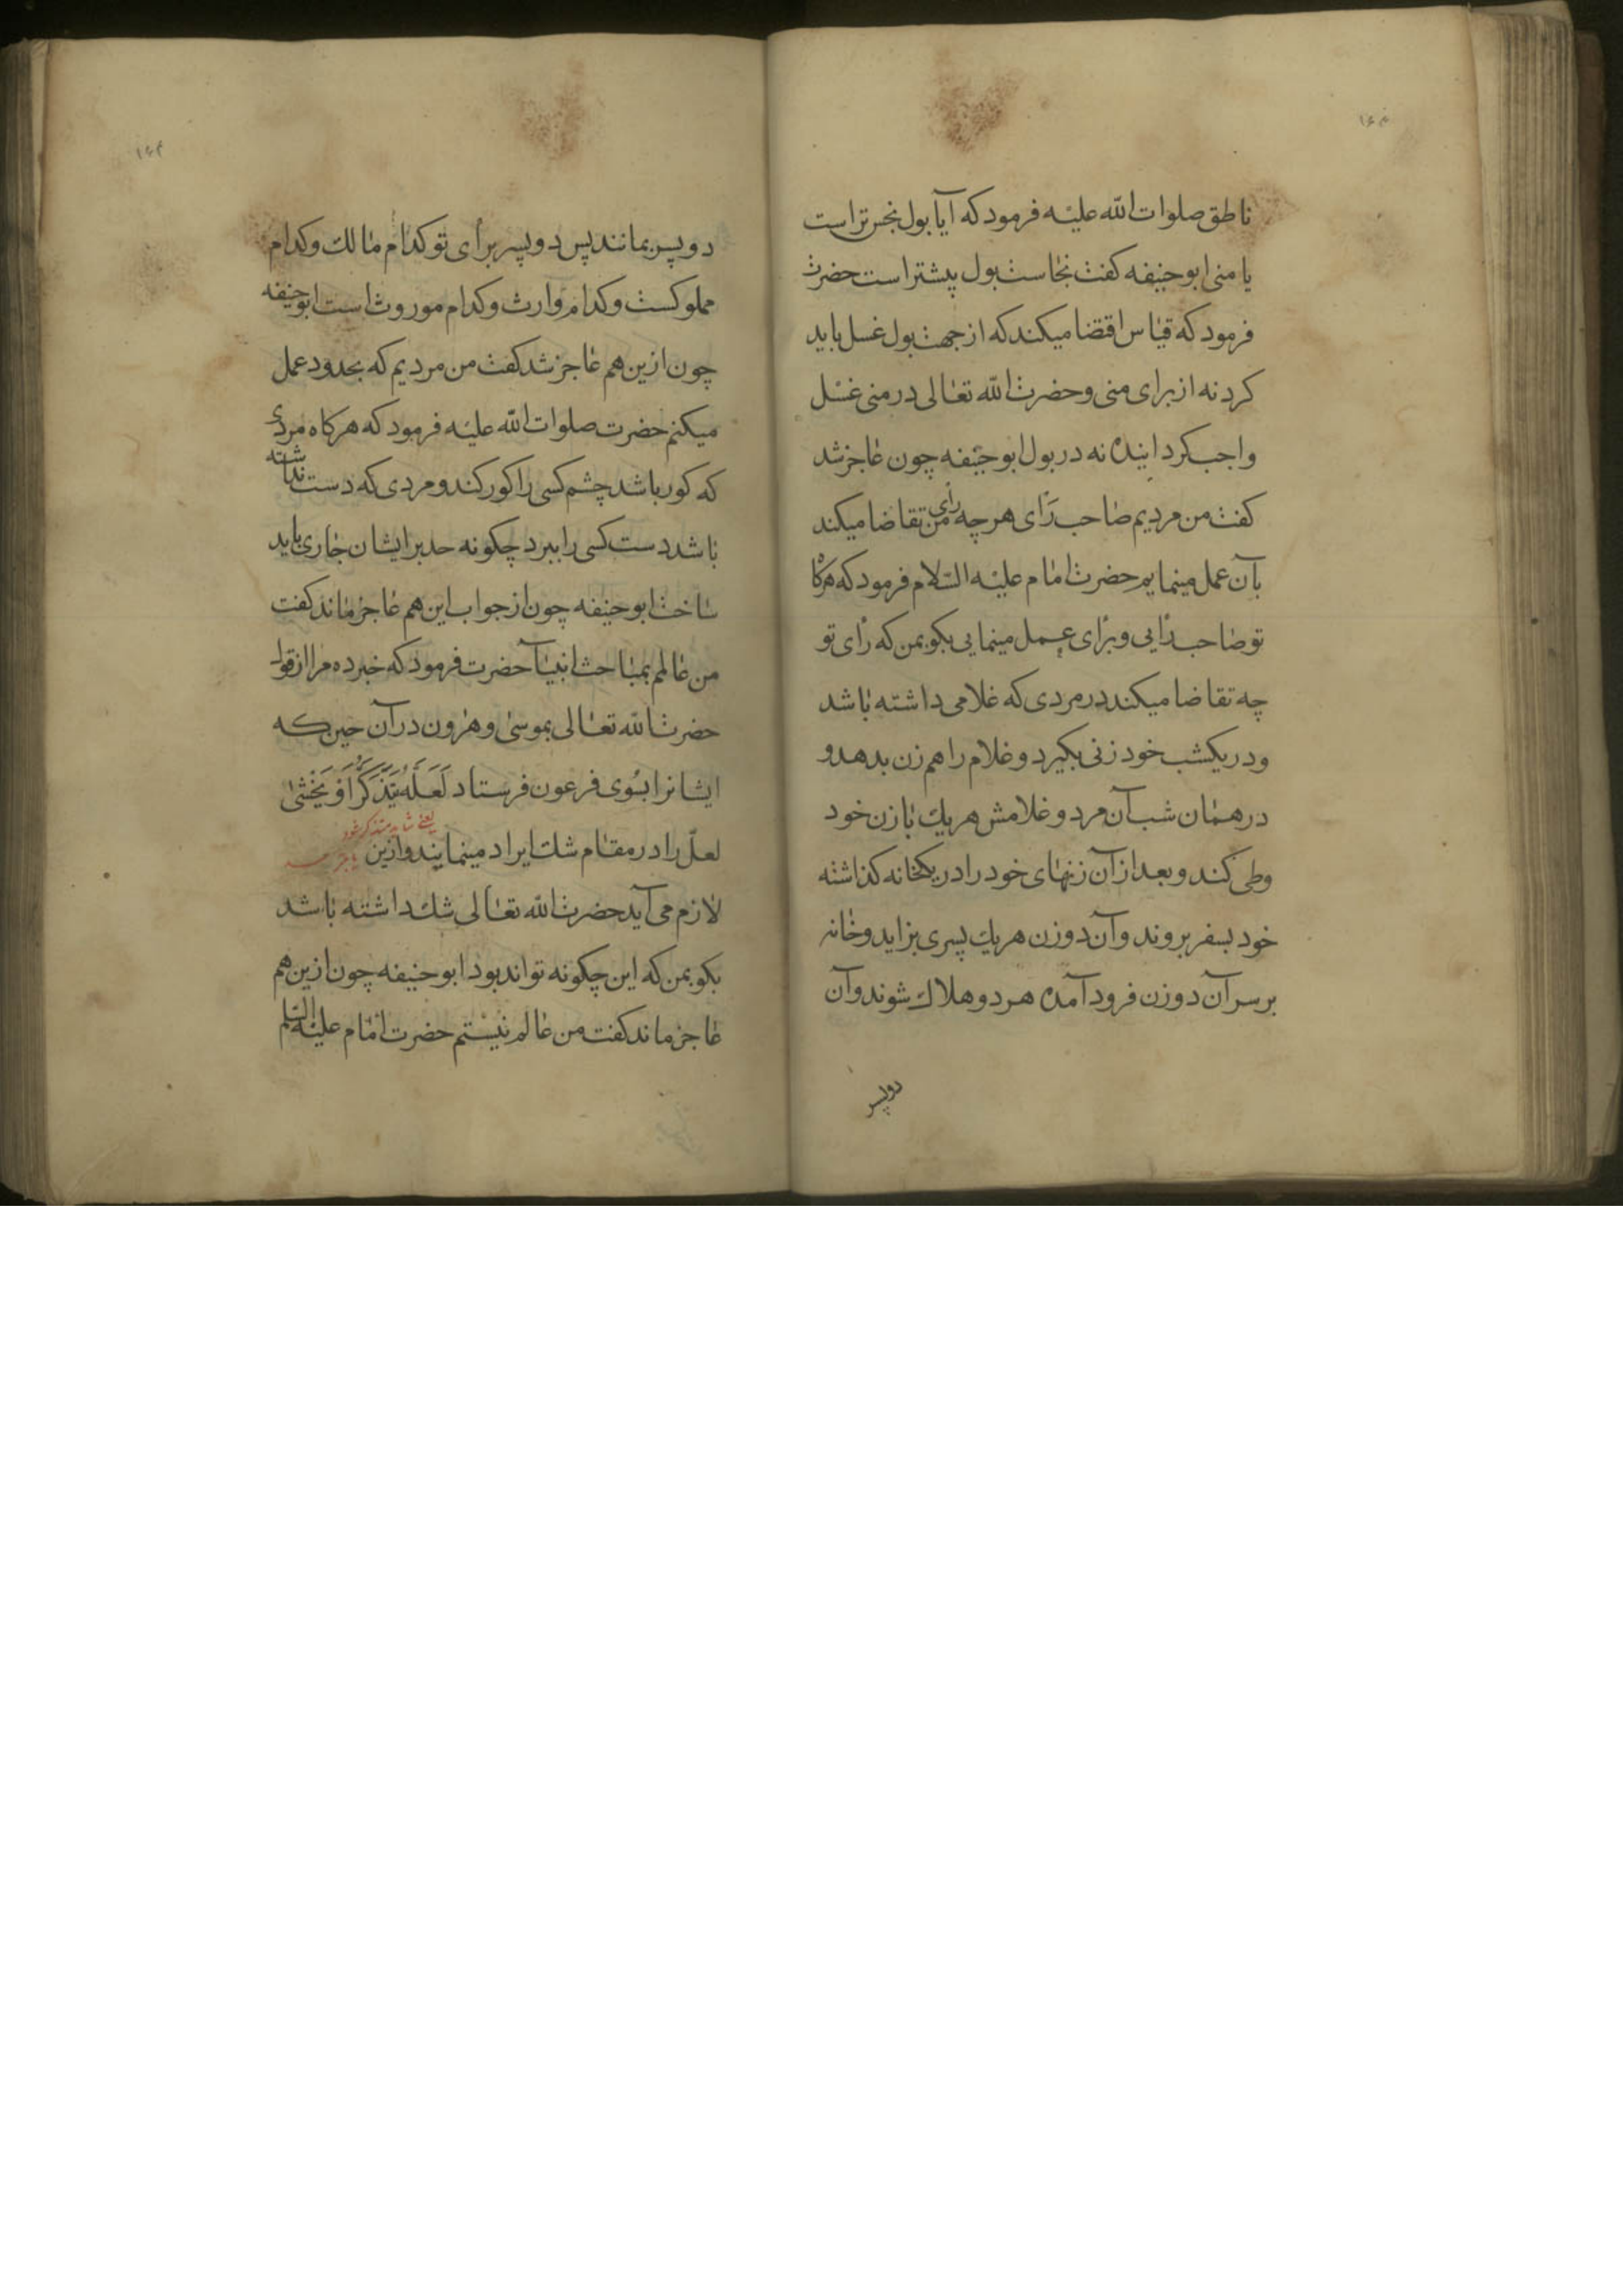 ۱۶۳
ناطق صلوات الله علیه فرمود که آیا بول نجس تر است
یا منی ابو حنیفه کفت نجاست بول پیشتر است حضرت
فرمود که قیاس اقتضا میکند که از جهت بول غسل باید
کرد نه از برای منی و حضرت الله تعالی در منی غسل
واجب کردانیده نه در بول ابو حنیفه چون عاجز شد
کفت من مردیم صاحب رای هر چه رای من تقاضا میکند
بآن عمل مینمایم حضرت امام علیه السلام فرمود که هرکاه
تو صاحب رایی و برای عمل مینمایی بکو بمن که رای تو
چه تقاضا میکند در مردی که غلامی داشته باشد
و در یکشب خود زنی بکیرد و غلام را هم زن بدهد و
در همان شب آن مرد و غلامش هر یک با زن خود
وطی کند و بعد از آن زنهای خود را در یکخانه کذاشته
خود بسفر بروند و آن دو زن هر یک پسری بزاید و خانه
بر سر آن دو زن فرود آمده هر دو هلاک شوند و آن
دو پسر
۱۶۴
دو پسر بمانند پس دو پسر برای تو کدام مالک و کدام
مملوکست و کدام وارث و کدام موروث است ابو حنیفه
چون ازین هم عاجز شد کفت من مردیم که بحدود عمل
میکنم حضرت صلوات الله علیه فرمود که هرکاه مردی
که کور باشد چشم کسی را کور کند و مردی که دست نداشته
باشد دست کسی را ببرد چکونه حد بر ایشان جاری باید
ساخت ابو حنیفه چون از جواب این هم عاجز ماند کفت
من عالم بمباحث انبیآ حضرت فرمود که خبر ده مرا از قول
حضرت الله تعالی بموسی و هرون در آن حین که
ایشانرا بسوی فرعون فرستاد لَعَلَّهُ يَتَذَكَّرُ أَوْ يَخْشىٰ
یعنی شاید متذکر شود
لعلّ را در مقام شک ایراد مینمایند و ازین
لازم می آید حضرت الله تعالی شک داشته باشد
بکو بمن که این چکونه تواند بود ابو حنیفه چون ازین هم
عاجز ماند کفت من عالم نیستم حضرت امام علیه السلم